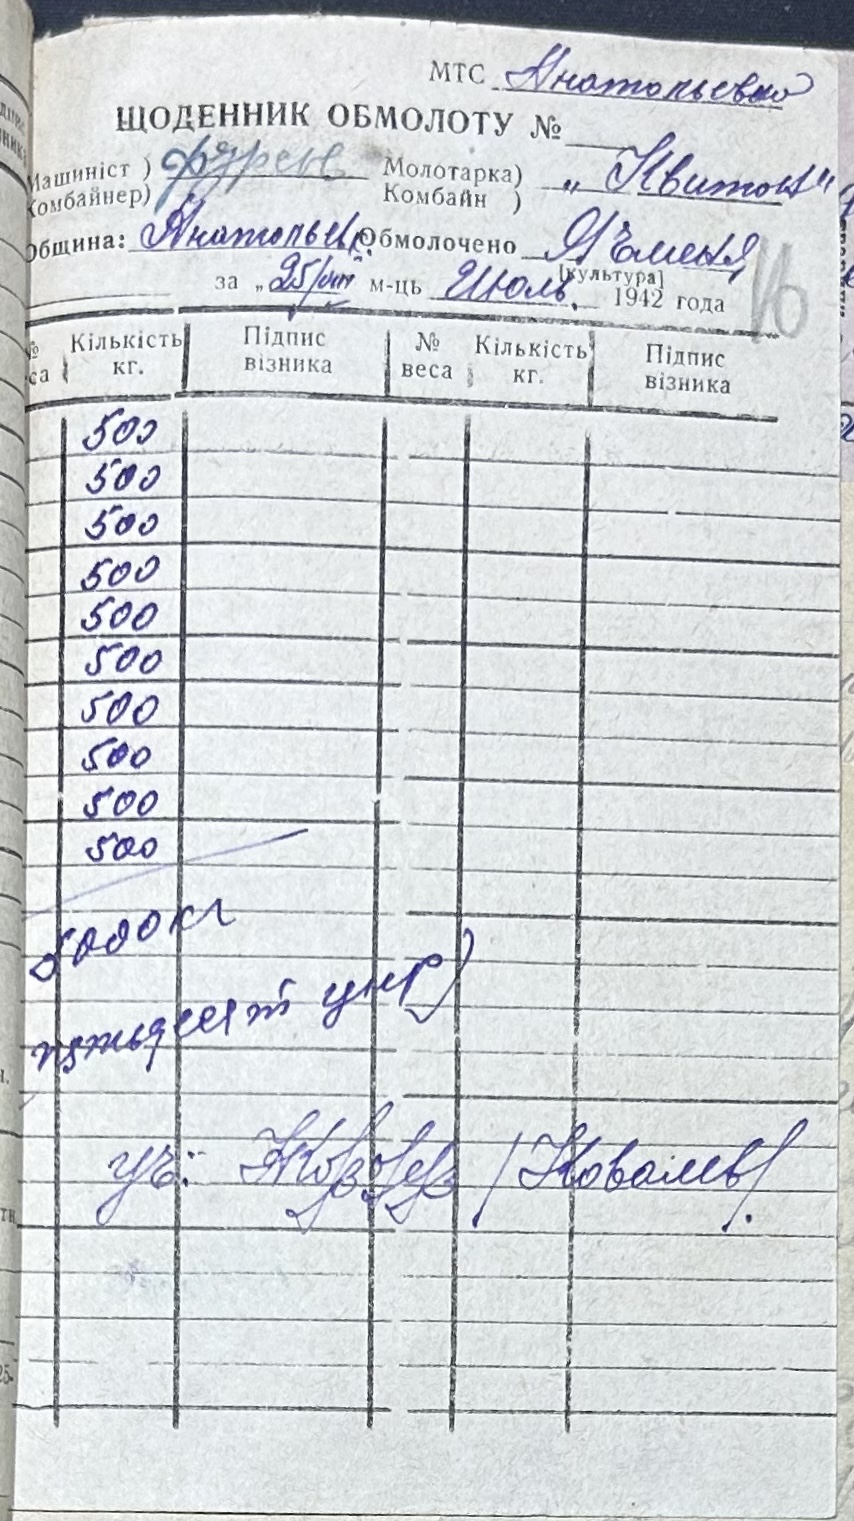 МТС Анатольевка
ЩОДЕННИК ОБМОЛОТУ №
Машиніст ) Молотарка)
Комбайнер) Комбайн )
Община: Анатольев. Обмолочено Ячменя
[культура]
за „25/VII" м-ць Июль. 1942 года
16
№ веса Кількість кг. Підпис візника № веса Кількість кг. Підпис візника
500
500
500
500
500
500
500
500
500
500
5000 кг
пятьдесят цнт)
уч: /Ковалев/.